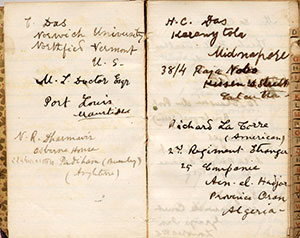 Das
Norwich University
Northfied Vermont
U. S-
M. L Doctor Esqr
Port Louis
Mauritius
N. R. Dharmavir
Osborne House
(Angleterre)
H. C. Das
Kerany tola
Midnapore
38/4 Raja Nobo
Kissen's Street
Calcutta
Richard La Torre
(American)
2d Regiment Etranger
29 Compania
Aen-el Hadjar
Provincia Oran
Algeria-